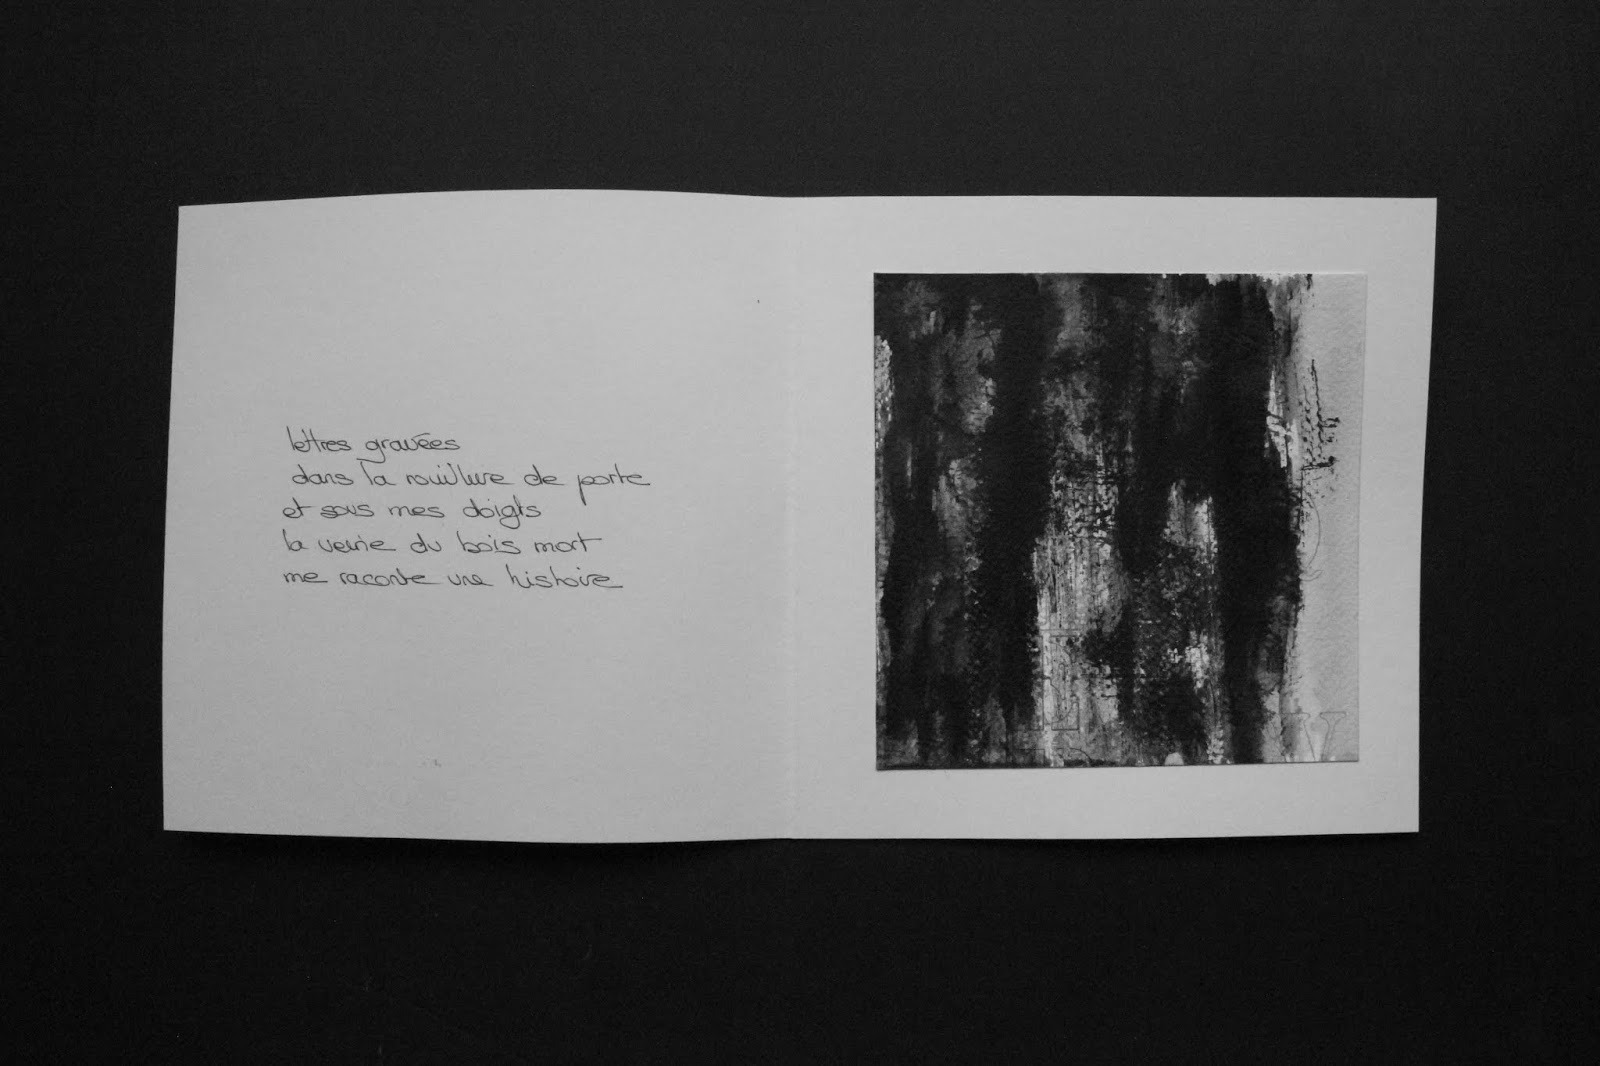 lettres gravées
dans la rouillure de porte
et sous mes doigts
la veine du bois mort
me raconte une histoire
V